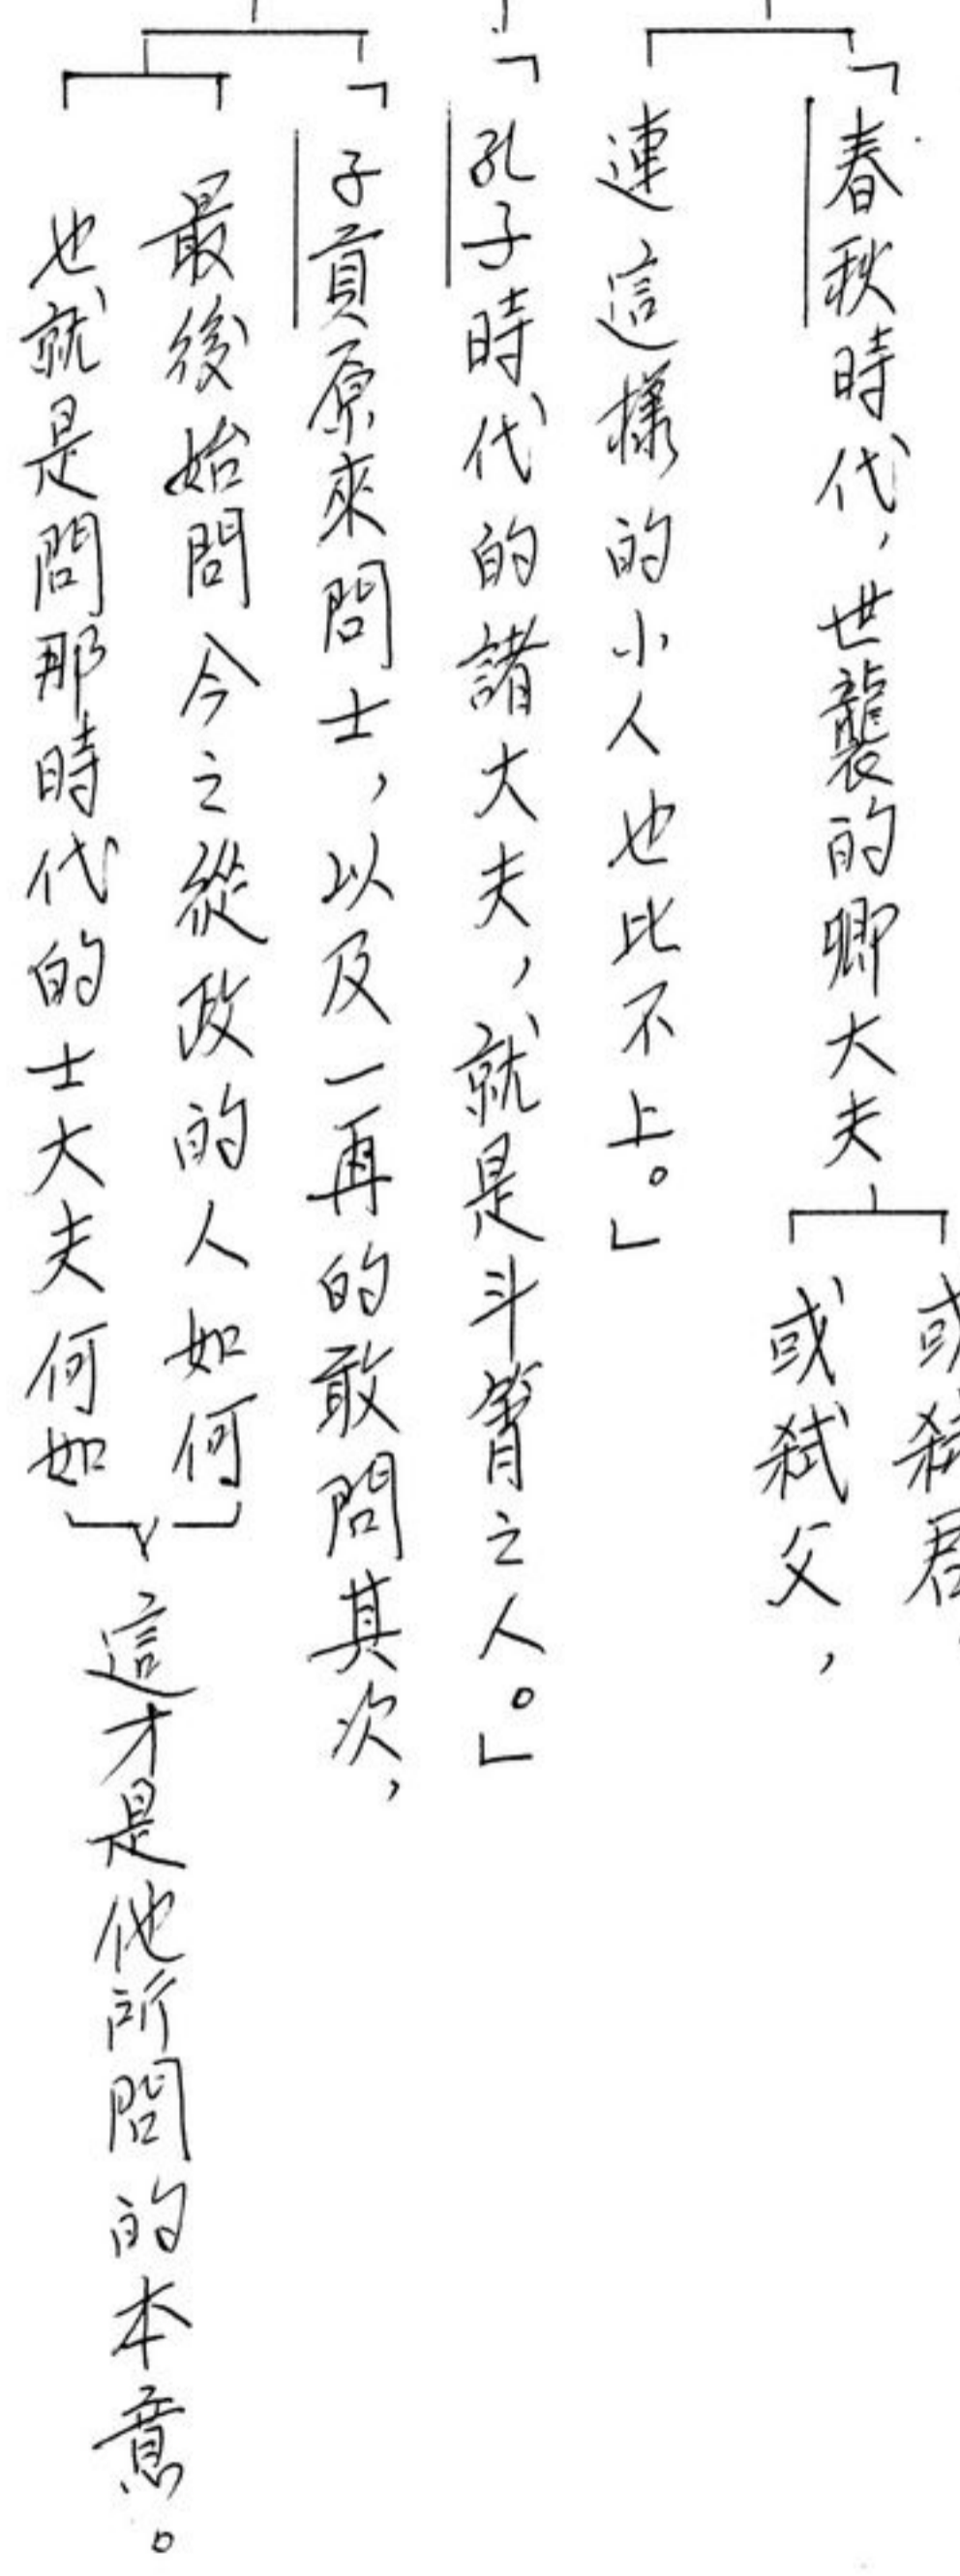 「春秋時代，世襲的卿大夫
或弒君，
或弒父，
連這樣的小人也比不上。」
「孔子時代的諸大夫，就是斗筲之人。」
「子貢原來問士，以及一再的敢問其次，
最後始問今之從政的人如何
也就是問那時代的士大夫何如
這才是他所問的本意。